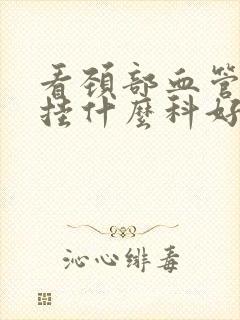 看颈部血管
挂什麼科好
沁心绯毒